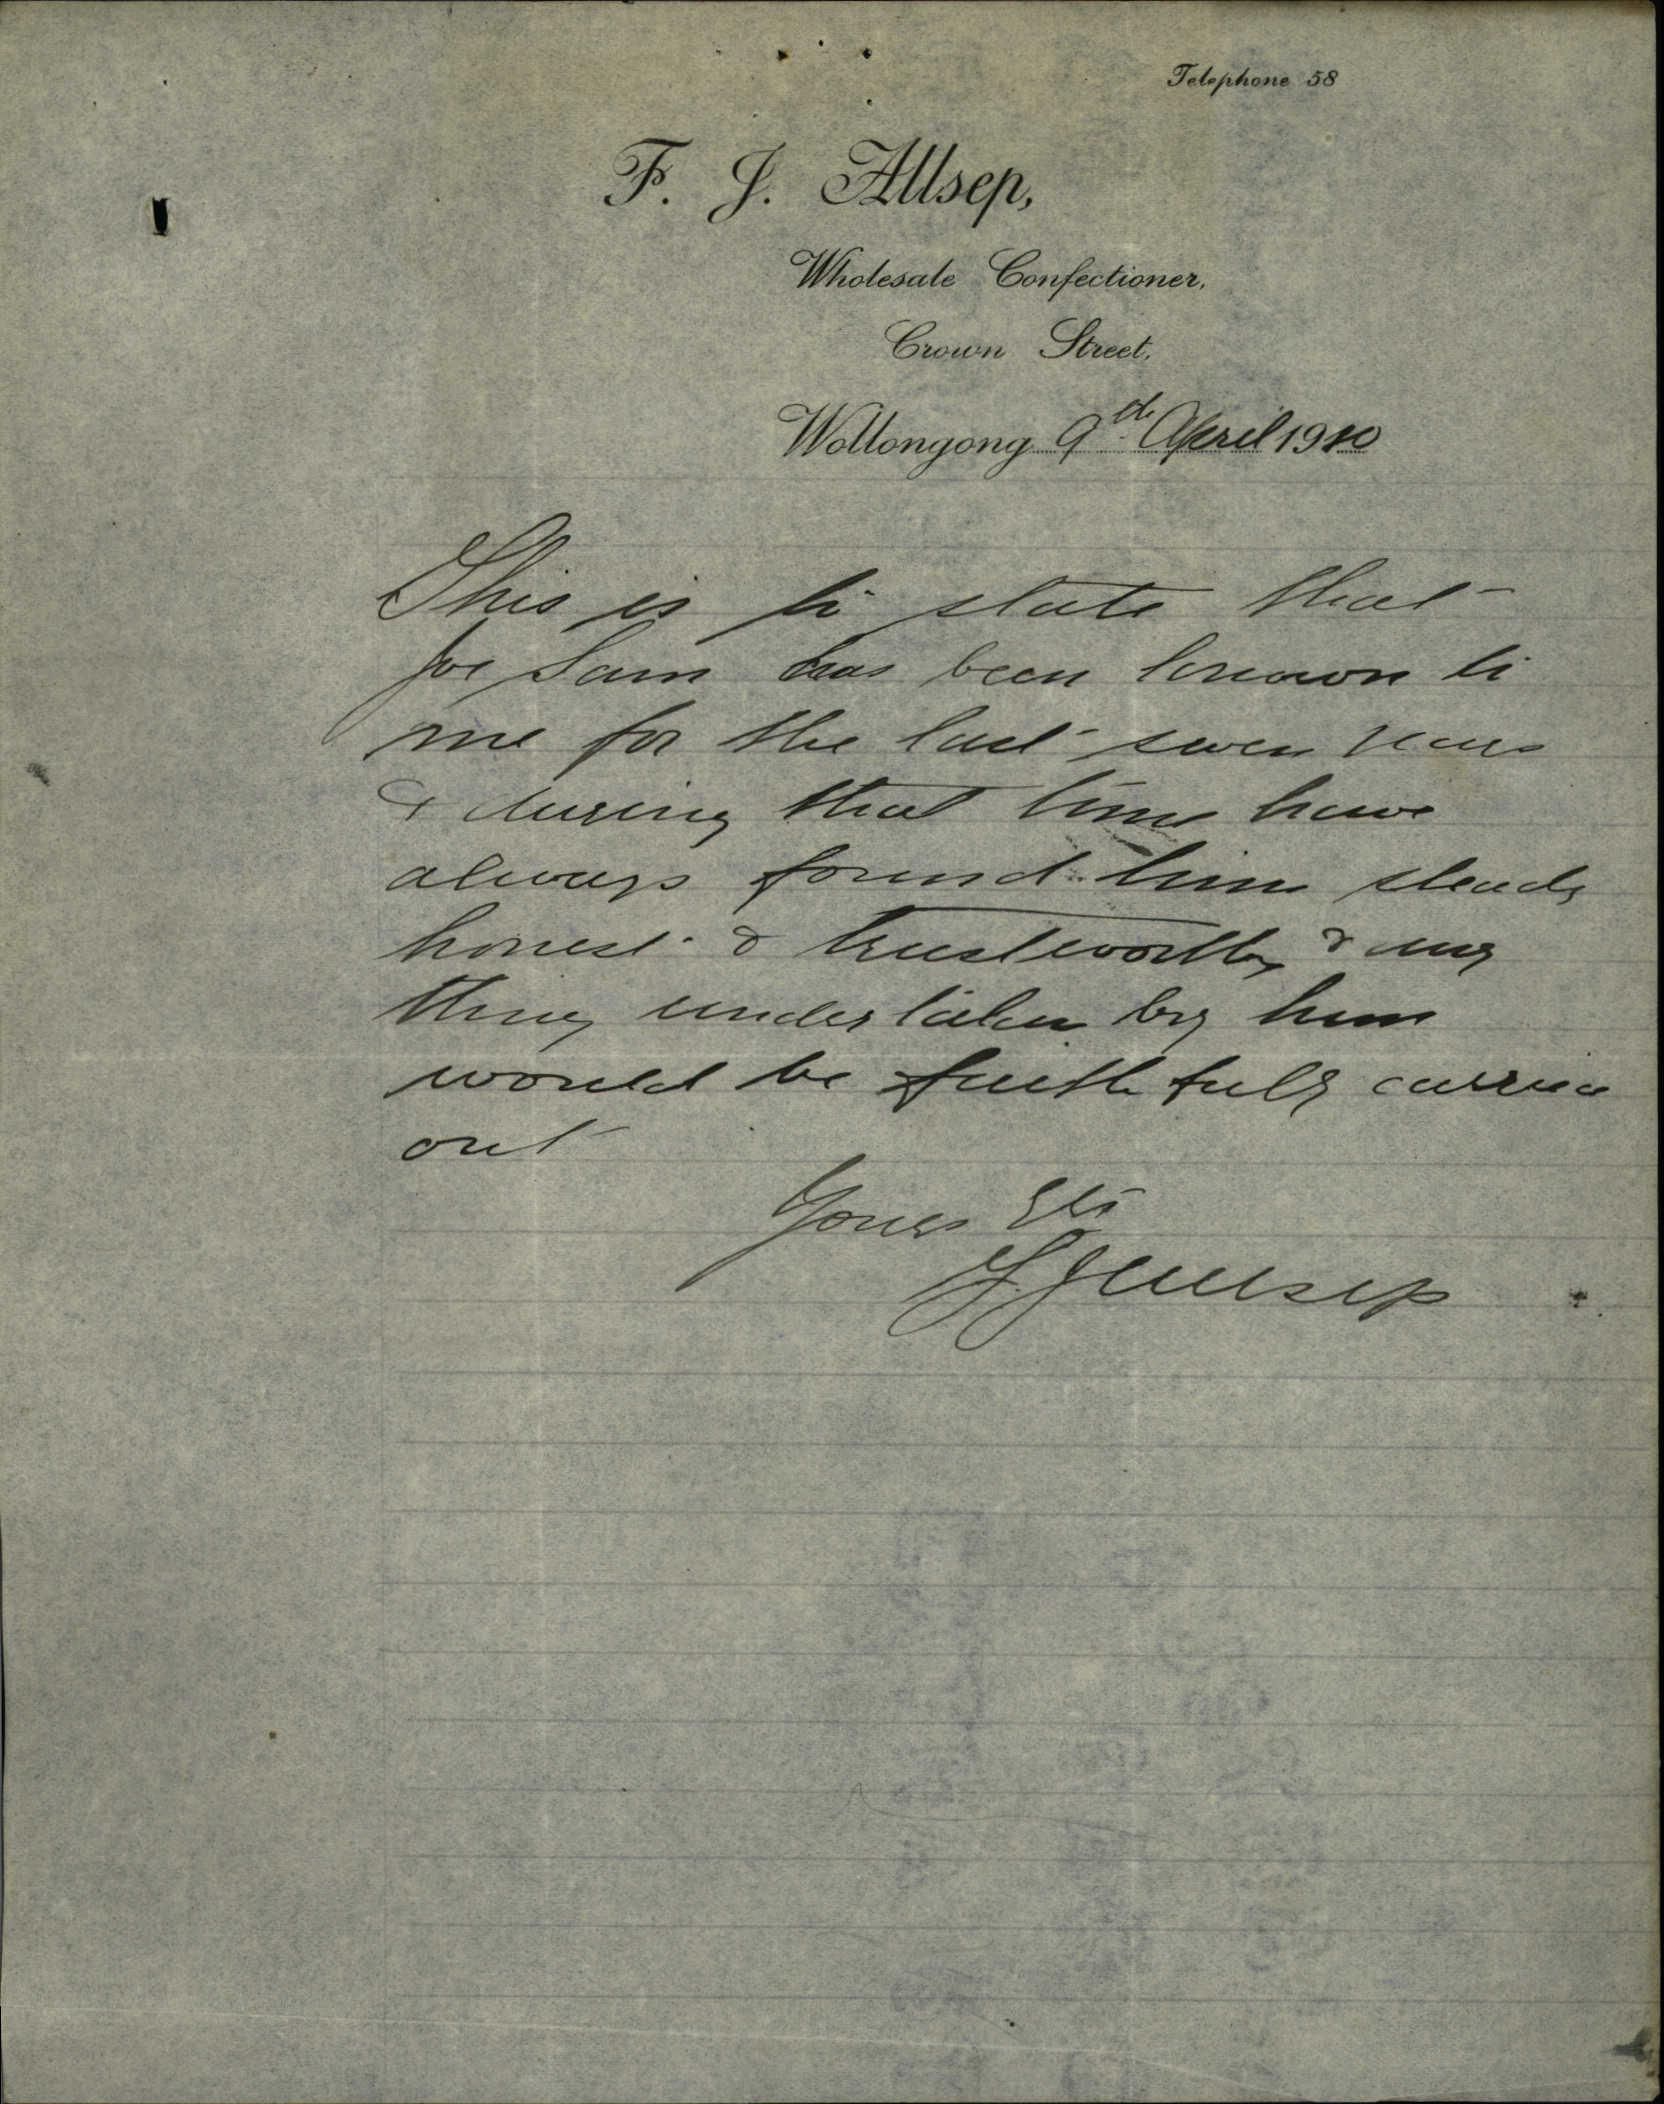 Telephone 58
F. J. Allsep,
Wholesale Confectioner,
Crown Street,
Wollongong 9th April 1910
This is to state that
Joe Sam has been known to
me for the last seven years
& during that time have
always found him steady
honest & trustworthy & any
thing undertaken by him
would be faithfully carried
out
Yours etc
F J Allsep